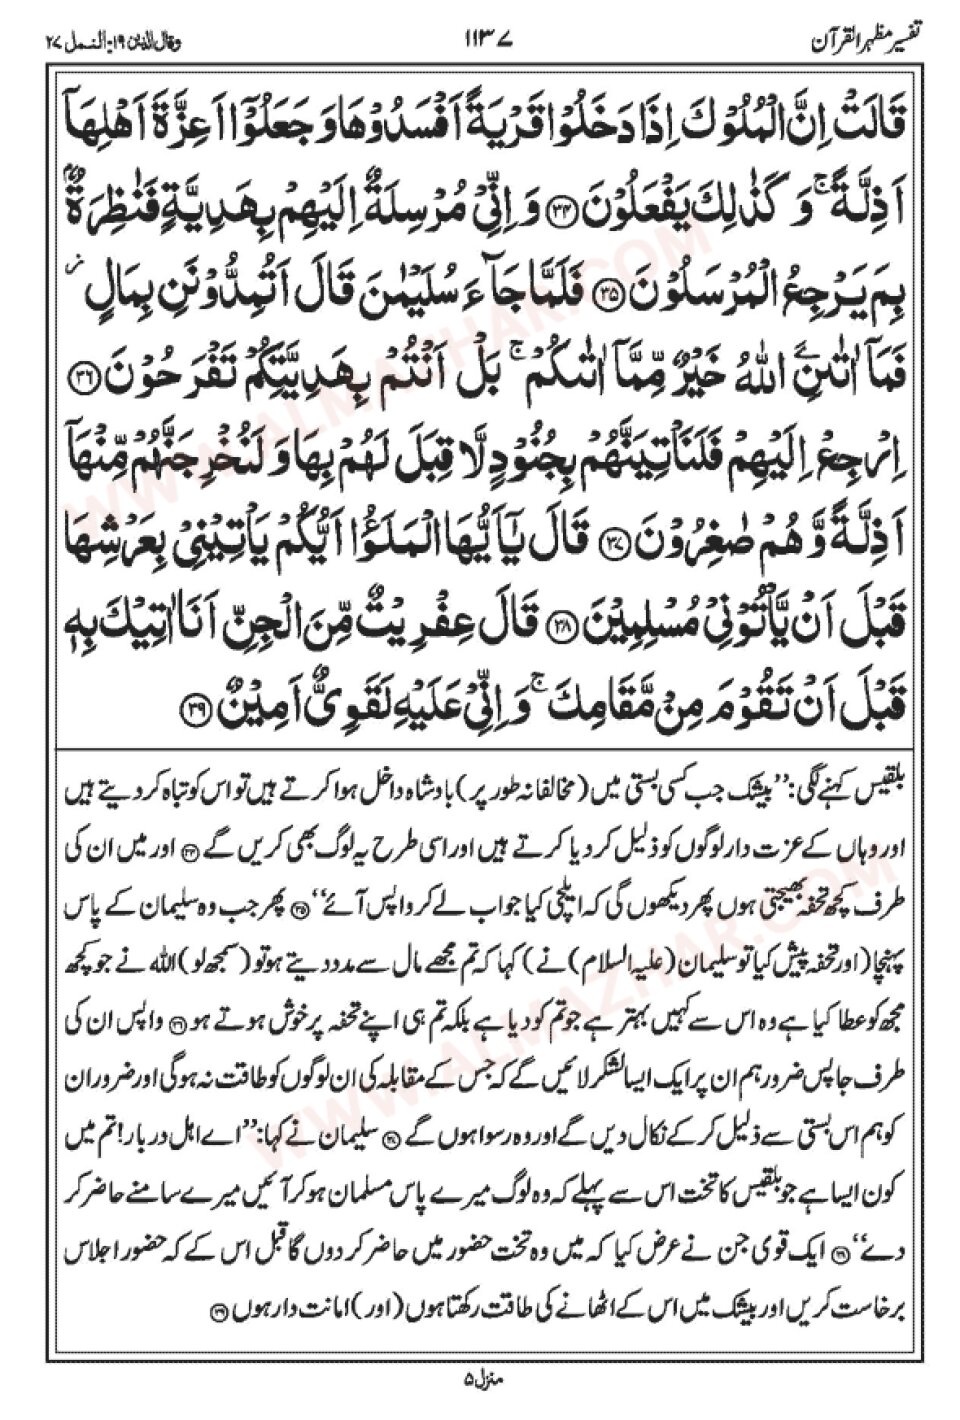 تفسیر مظہر القرآن
۱۱۳۷
وقال الذین ۱۹: النمل ۲۷
قَالَتْ اِنَّ الْمُلُوْكَ اِذَا دَخَلُوْا قَرْيَةً اَفْسَدُوْهَا وَجَعَلُوْۤا اَعِزَّةَ اَهْلِهَاۤ
اَذِلَّةً ۚ وَكَذٰلِكَ يَفْعَلُوْنَ ۳۴ وَاِنِّيْ مُرْسِلَةٌ اِلَيْهِمْ بِهَدِيَّةٍ فَنٰظِرَةٌۢ
بِمَ يَرْجِعُ الْمُرْسَلُوْنَ ۳۵ فَلَمَّا جَآءَ سُلَيْمٰنَ قَالَ اَتُمِدُّوْنَنِ بِمَالٍ ز
فَمَاۤ اٰتٰىنِۦَ اللّٰهُ خَيْرٌ مِّمَّاۤ اٰتٰىكُمْ ۚ بَلْ اَنْتُمْ بِهَدِيَّتِكُمْ تَفْرَحُوْنَ ۳۶
اِرْجِعْ اِلَيْهِمْ فَلَنَاْتِيَنَّهُمْ بِجُنُوْدٍ لَّا قِبَلَ لَهُمْ بِهَا وَلَنُخْرِجَنَّهُمْ مِّنْهَاۤ
اَذِلَّةً وَّهُمْ صٰغِرُوْنَ ۳۷ قَالَ يٰۤاَيُّهَا الْمَلَؤُا اَيُّكُمْ يَاْتِيْنِيْ بِعَرْشِهَا
قَبْلَ اَنْ يَّاْتُوْنِيْ مُسْلِمِيْنَ ۳۸ قَالَ عِفْرِيْتٌ مِّنَ الْجِنِّ اَنَا اٰتِيْكَ بِهٖ
قَبْلَ اَنْ تَقُوْمَ مِنْ مَّقَامِكَ ۚ وَاِنِّيْ عَلَيْهِ لَقَوِيٌّ اَمِيْنٌ ۳۹
بلقیس کہنے لگی: ’’بیشک جب کسی بستی میں (مخالفانہ طور پر) بادشاہ داخل ہوا کرتے ہیں تو اس کو تباہ کر دیتے ہیں
اور وہاں کے عزت دار لوگوں کو ذلیل کر دیا کرتے ہیں اور اسی طرح یہ لوگ بھی کریں گے ۳۴ اور میں ان کی
طرف کچھ تحفہ بھیجتی ہوں پھر دیکھوں گی کہ ایلچی کیا جواب لے کر واپس آئے‘‘ ۳۵ پھر جب وہ سلیمان کے پاس
پہنچا (اور تحفہ پیش کیا تو سلیمان (علیہ السلام) نے) کہا کہ تم مجھے مال سے مدد دیتے ہو تو (سمجھ لو) اللہ نے جو کچھ
مجھ کو عطا کیا ہے وہ اس سے کہیں بہتر ہے جو تم کو دیا ہے بلکہ تم ہی اپنے تحفہ پر خوش ہوتے ہو ۳۶ واپس ان کی
طرف جا پس ضرور ہم ان پر ایک ایسا لشکر لائیں گے کہ جس کے مقابلہ کی ان لوگوں کو طاقت نہ ہوگی اور ضرور ان
کو ہم اس بستی سے ذلیل کر کے نکال دیں گے اور وہ رسوا ہوں گے ۳۷ سلیمان نے کہا: ’’اے اہل دربار! تم میں
کون ایسا ہے جو بلقیس کا تخت اس سے پہلے کہ وہ لوگ میرے پاس مسلمان ہو کر آئیں میرے سامنے حاضر کر
دے‘‘ ۳۸ ایک قوی جن نے عرض کیا کہ میں وہ تخت حضور میں حاضر کر دوں گا قبل اس کے کہ حضور اجلاس
برخاست کریں اور بیشک میں اس کے اٹھانے کی طاقت رکھتا ہوں (اور) امانت دار ہوں ۳۹
منزل ۵
WWW.ALMAZHAR.COM
WWW.ALMAZHAR.COM